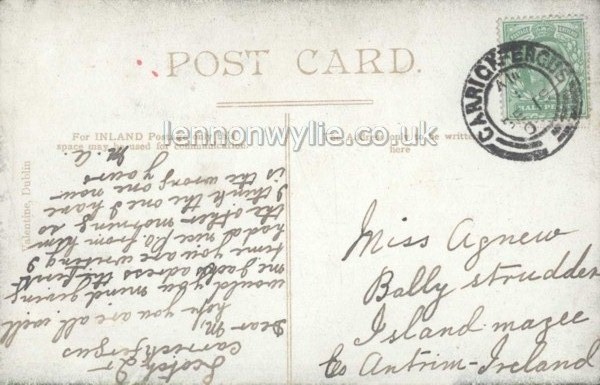 POST CARD.
For INLAND Postage only this
space may be used for communication.
be written
here
lennonwylie.co.uk
CARRICKFERGUS
HALF PENNY
Valentine, Dublin
Scotch Qr
Carrickfergus
Dear M.
hope you are all well
would you mind giving
me Jacks address the first
time you are writing I
had a new P.O. from him
the other morning so
I think the one I have
is the wrong one now
yours
M. A.
Miss Agnew
Bally strudder
Island magee
Co Antrim-Ireland